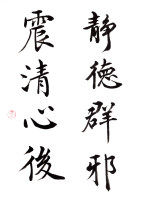 静德群邪
震清心後